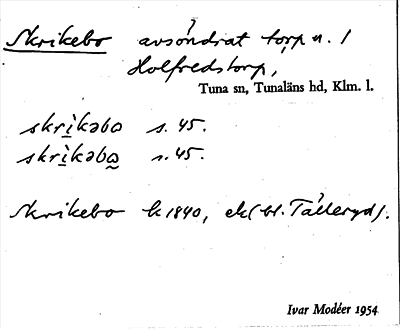 Skrikebo avsöndrat torp u. 1
Holfredstorp,
Tuna sn, Tunaläns hd, Klm. l.
skrìkəbo s. 45.
skrìkəbo̰ s. 45.
Skrikebo k 1840, ek (bl. Tålleryd).
Ivar Modéer 1954